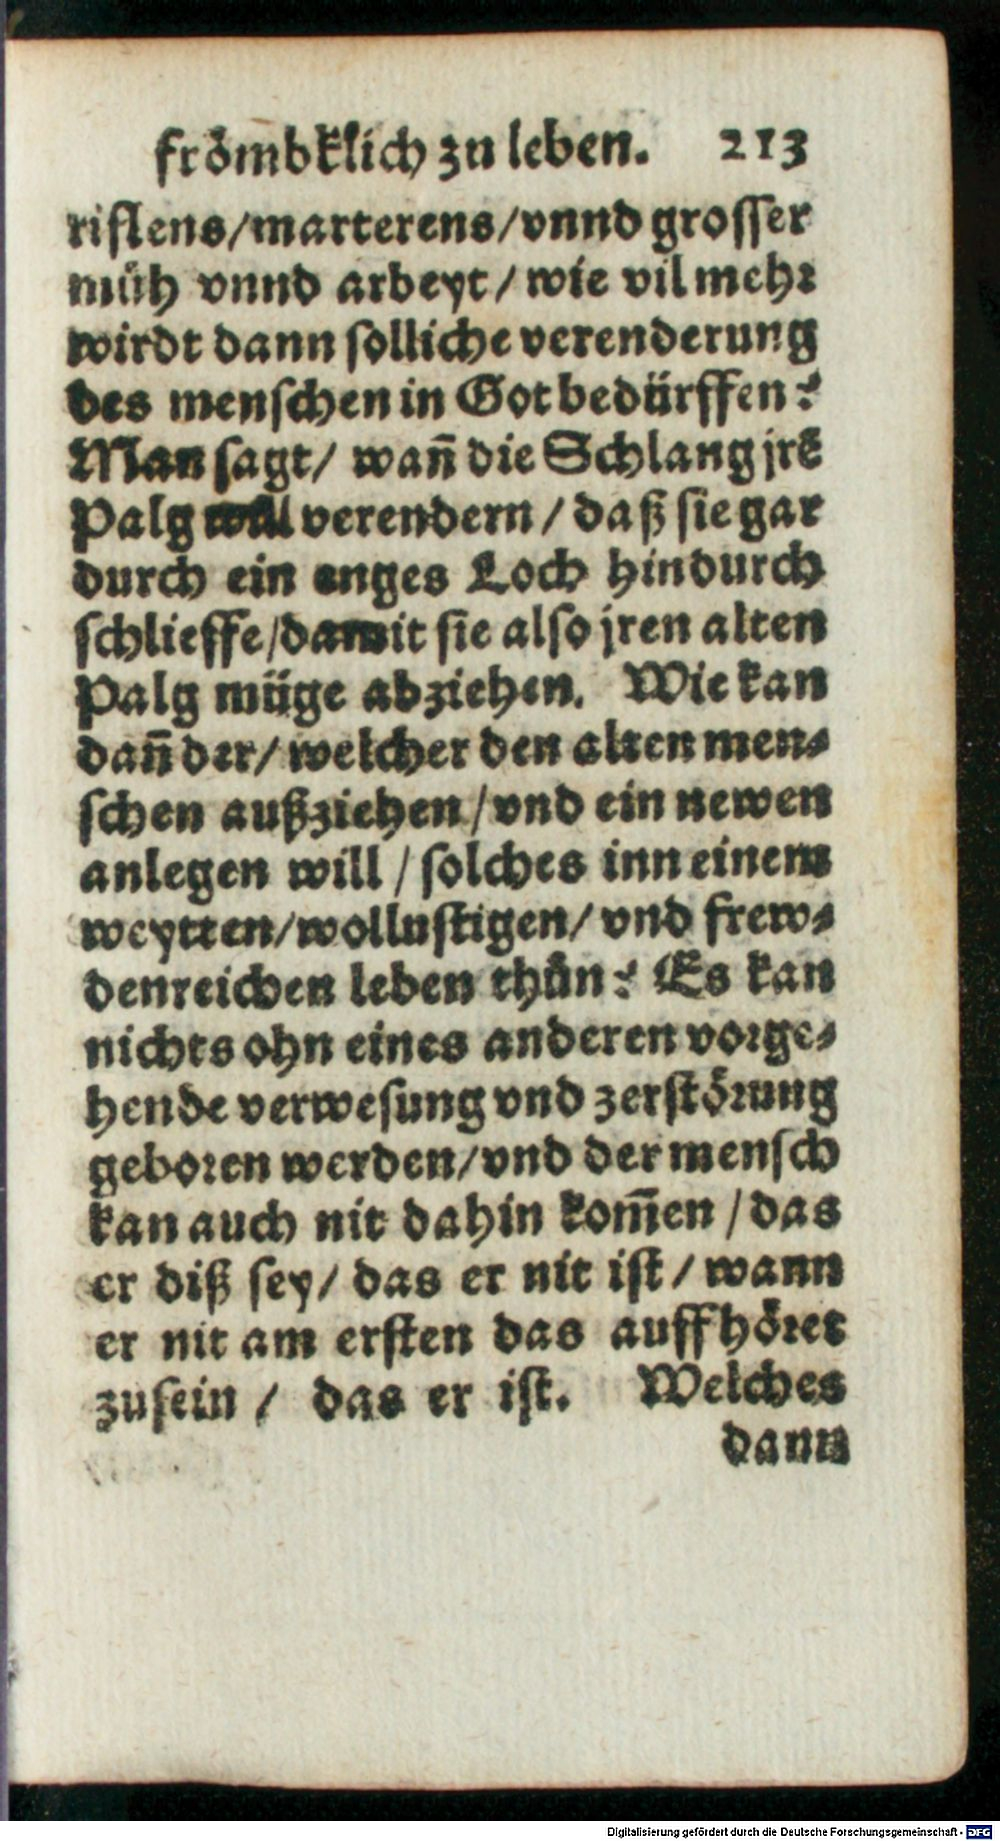 frömbklich zu leben. 213
riſlens/marterens/vnnd groſſer
müh vnnd arbeyt/wie vil mehr
wirdt dann ſolliche verenderung
des menſchen in Got bedürffen?
Man ſagt/ wañ die Schlang jrẽ
Palg will verendern/daß ſie gar
durch ein enges Loch hindurch
ſchlieffe/damit ſie alſo jren alten
Palg müge abziehen. Wie kan
dañ der/welcher den alten men-
ſchen außziehen/vnd ein newen
anlegen will/ſolches inn einem
weytten/wolluſtigen/vnd frew-
denreichen leben thůn? Es kan
nichts ohn eines anderen vorge-
hende verweſung vnd zerſtörung
geboren werden/vnd der menſch
kan auch nit dahin kom̃en/das
er diß ſey/das er nit iſt/wann
er nit am erſten das auffhöret
zuſein/ das er iſt. Welches
dann
Digitalisierung gefördert durch die Deutsche Forschungsgemeinschaft - DFG